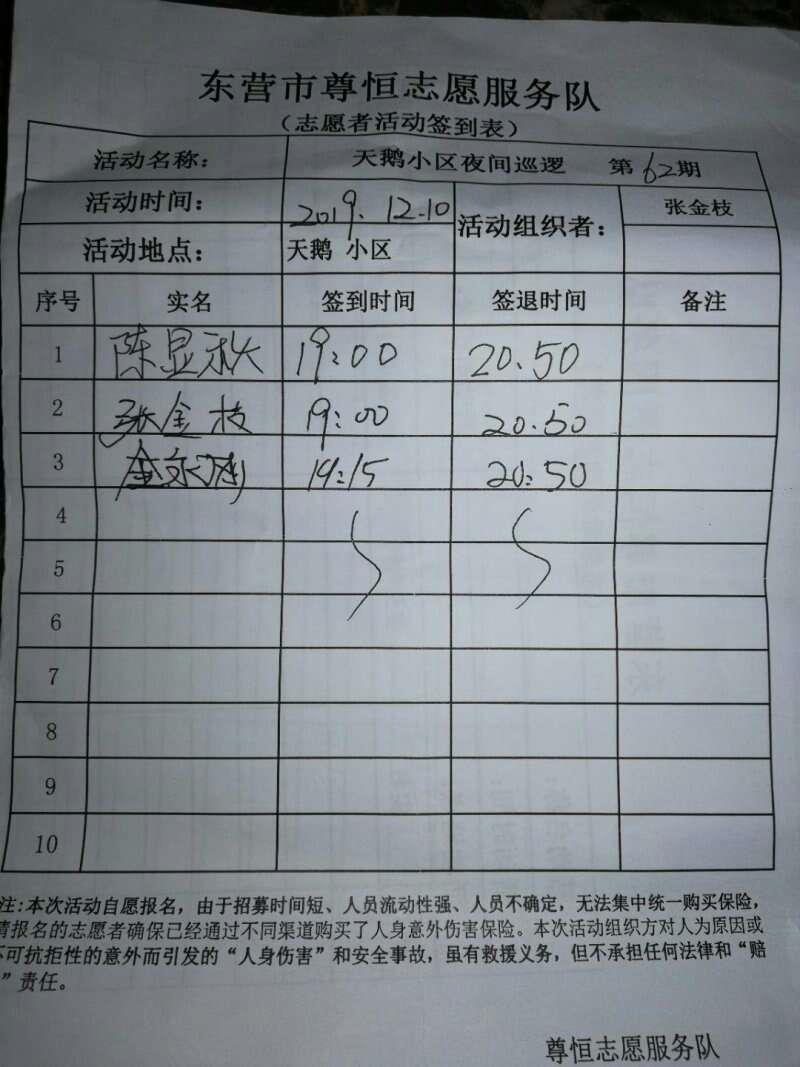 东营市尊恒志愿服务队
（志愿者活动签到表）
活动名称： 天鹅小区夜间巡逻 第62期
活动时间： 2019.12.10 活动组织者： 张金枝
活动地点： 天鹅 小区
序号 实名 签到时间 签退时间 备注
1 陈显永 19:00 20.50
2 张金枝 19:00 20.50
3 19:15 20:50
4
5
6
7
8
9
10
注:本次活动自愿报名，由于招募时间短、人员流动性强、人员不确定，无法集中统一购买保险，
请报名的志愿者确保已经通过不同渠道购买了人身意外伤害保险。本次活动组织方对人为原因或
不可抗拒性的意外而引发的“人身伤害”和安全事故，虽有救援义务，但不承担任何法律和“赔
”责任。
尊恒志愿服务队